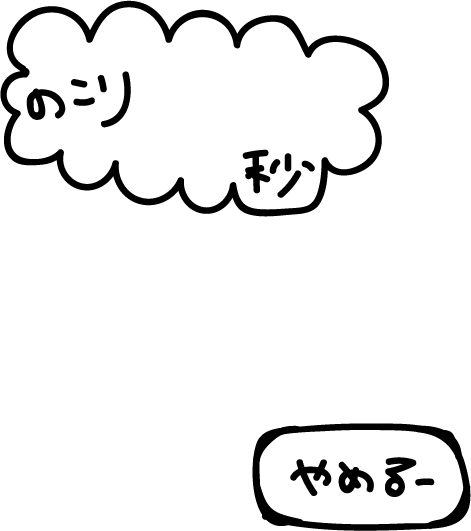 のこり
秒
やめるー